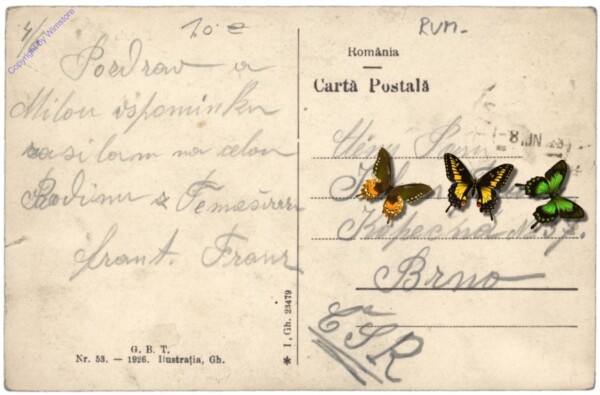 Copyright by Wimstore
10 e
RUM.
Pozdrav a
Milou vspomínku
zasilam na celou
Rodinu z
Frant. Franz
G. B. T.
Nr. 53. — 1926. Ilustraţia, Gh.
* I, Gh. 23479
România
Cartă Postală
Kopečná N. 37.
Brno
ČSR